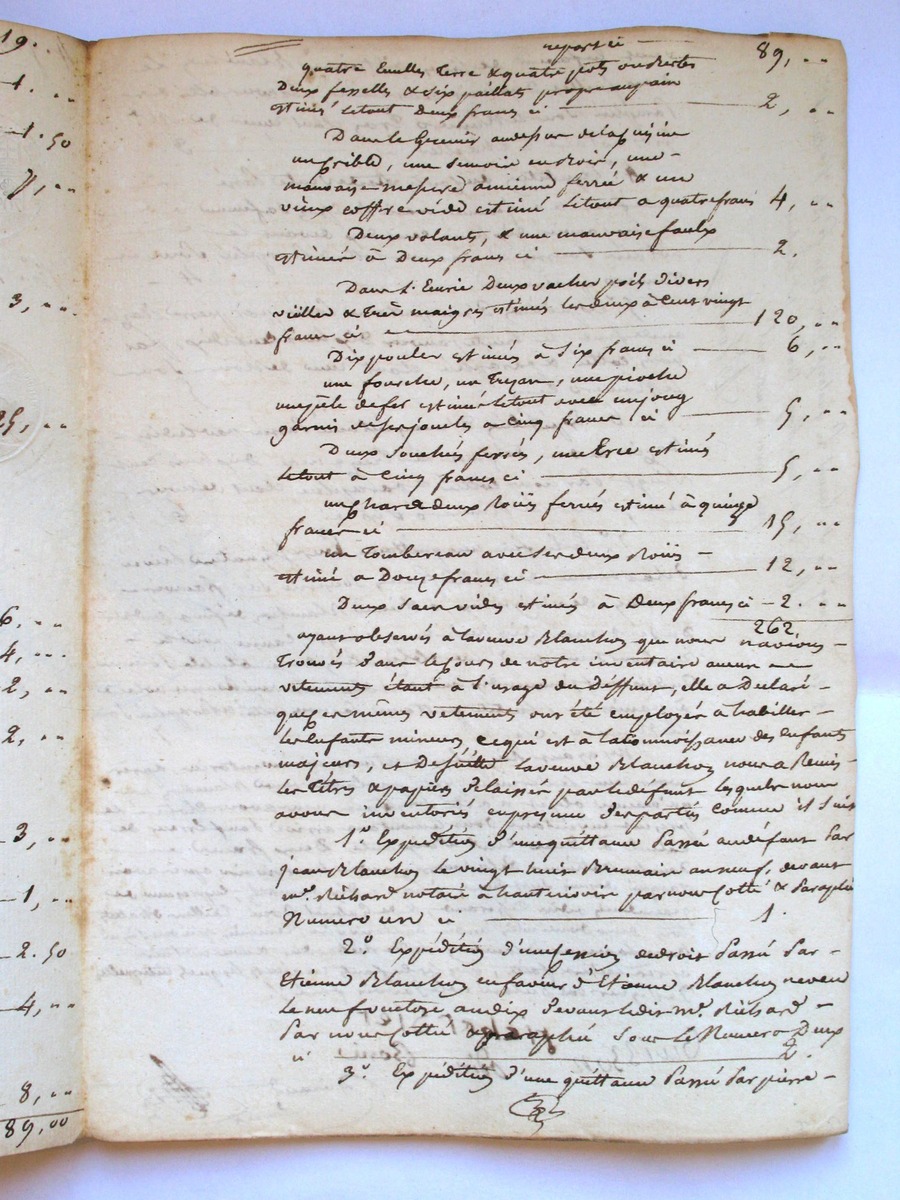 19. ..
4. ..
1. 50
7, ..
3, ..
25, ..
6. ..
4, ..
2, ..
2, ..
3, ..
1, ..
2. 50
4, ..
8, ..
89,00
report ci 89, ..
quatre Ecuelles terre & quatre pots
Deux fesselles & dix paillats propre au pain
Estimés le tout Deux francs ci 2, ..
Dans le Grenier au dessus de la Cuisine
un Crible, une semoir en bois, une
mauvaise mesure ancienne ferrée & un
vieux coffre vide estimé le tout a quatre francs 4, ..
Deux volants, & une mauvaise faulx
Estimés à Deux francs ci 2.
Dans l'Ecurie Deux vaches poils divers
vieilles & Très maigres estimés les deux à Cent vingt
francs ci 120, ..
Dix poules estimés à six francs ci 6, ..
une fourche, un Trejan, une pioche
une pèle de fer estimé le tout avec un joug
garnis de ses joucles a Cinq francs ci 5, ..
Deux ferrés, une Estimés
le tout à Cinq francs ci 5, ..
un Char & deux Roües ferrés estimé à quinze
francs ci 15, ..
un Tombereau avec ses deux Roües
Estimé a Douze francs ci 12, ..
Deux sacs vides estimés à Deux francs ci 2. ..
262
ayant observés à la veuve Blanchon que nous n'avions
Trouvés dans le Cours de notre inventaire aucun
vetements étant à l'usage du Deffunt, elle a Declaré
que ces mêmes vetements ont été employés à habiller
les Enfants mineurs, ce qui est à la Connoissance des Enfants
majeurs, et De suitte la veuve Blanchon nous a Remis
les titres & papiers Delaissés par le défunt lesquels nous
avons inventoriés en presence des parties comme il suit
1.º Expédition d'une quittance Passée au défunt Par
jean Blanchon le vingt huit Brumaire an neuf, devant
mr. Richard notaire à hautrivoir par nous Cotté & Paraphé
Numero un ci 1.
2.º Expédition d'une Cession de droit Passé Par
Etienne Blanchon en faveur d'Etienne Blanchon neveu
le neuf an dix devant ledit mr. Richard
Par nous Cotté & paraphé sous le Numero Deux
ci 2.
3.º Expédition d'une quittance Passée Par pierre